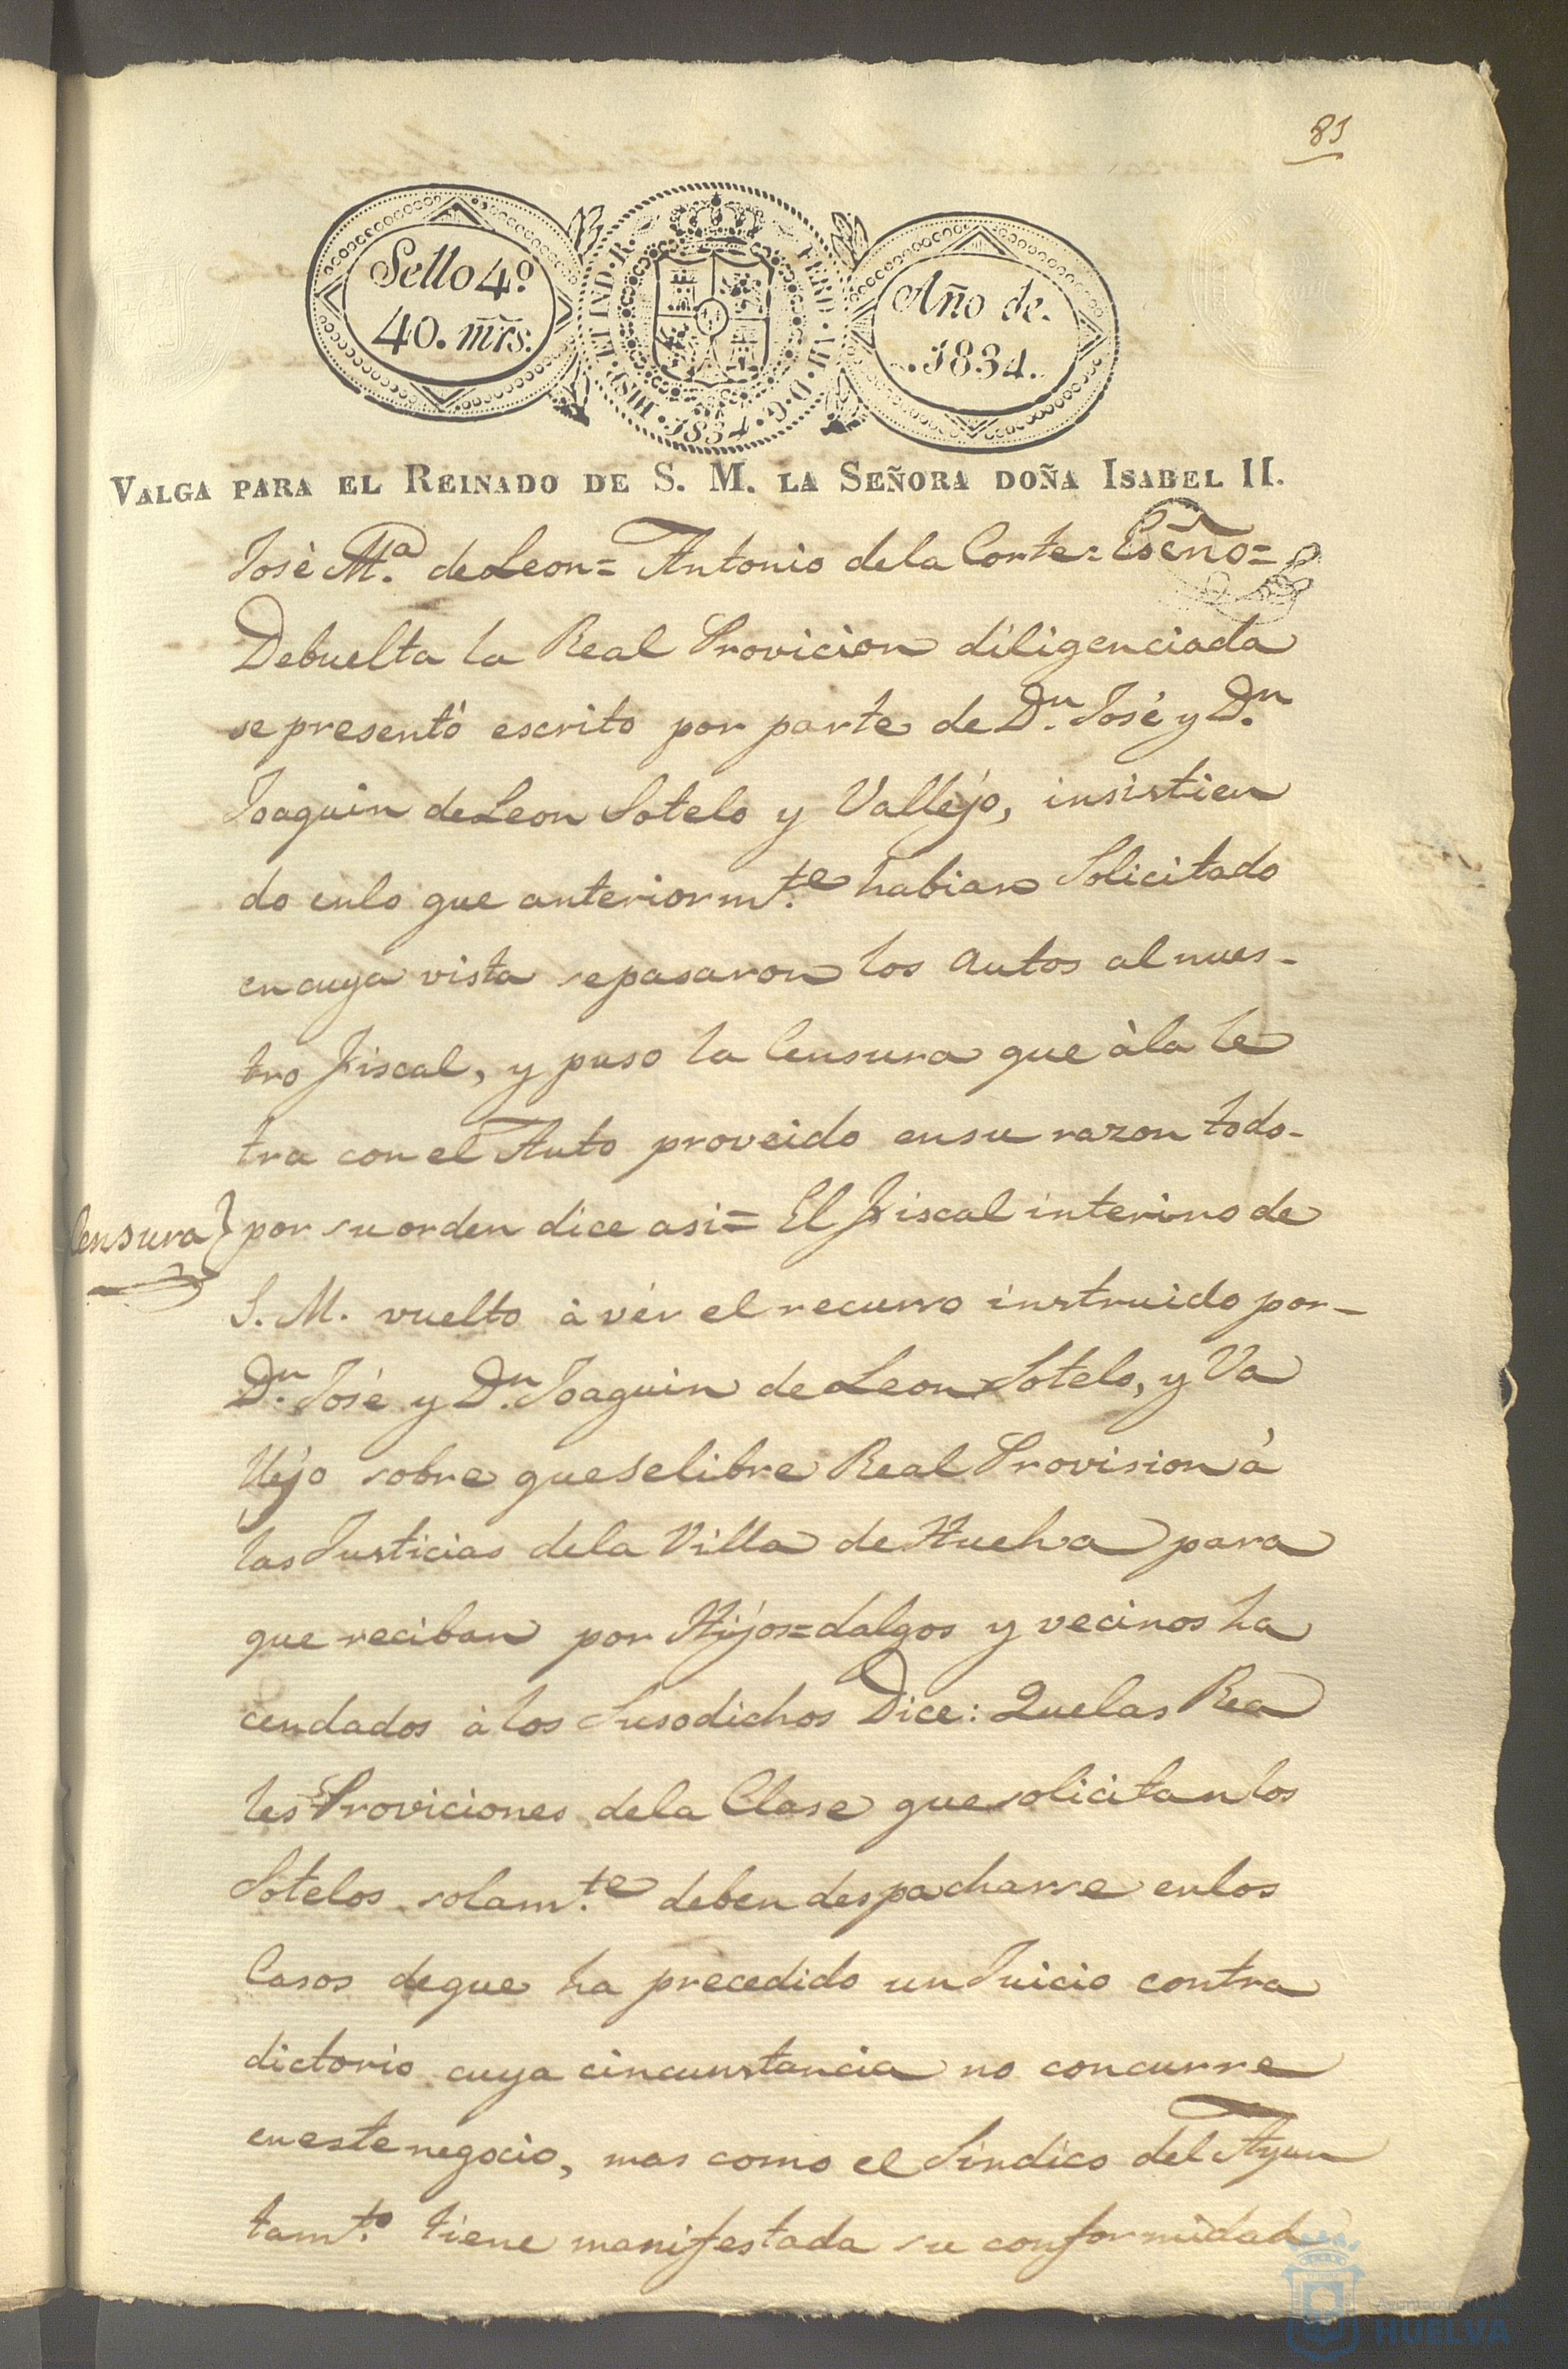 81
Sello 4º
40. mrs.
HISP. ET IND. R. FERD. VII. D. G. 1834
Año de
1834.
VALGA PARA EL REINADO DE S. M. LA SEÑORA DOÑA ISABEL II.
José M.ª de Leon= Antonio dela Corte= Esc̃no=
Debuelta la Real Provicion diligenciada
se presentó escrito por parte de D.n José y D.n
Joaquin de Leon Sotelo y Vallejo, insistien
do enlo que anteriorm.te habian Solicitado
en cuya vista sepasaron los autos al nues-
tro Fiscal, y puso la Censura que àla le
tra con el Auto proveido ensu razon todo-
Censura} por su orden dice asi= El Fiscal interino de
S. M. vuelto à vér el recurso instruido por-
D.n José y D.n Joaquin de Leon Sotelo, y Va
llejo sobre queselibre Real Provision à
las Justicias dela Villa de Huelva para
que reciban por Hijos=dalgos y vecinos ha
cendados à los Susodichos Dice: Quelas Rea
les Proviciones dela Clase que solicitan los
Sotelos solam.te deben despacharse enlos
Casos deque ha precedido un Juicio contra
dictorio cuya circunstancia no concurre
en este negocio, mas como el Sindico del Ayun
tam.to tiene manifestada su conformidad
Ayuntamiento de
HUELVA